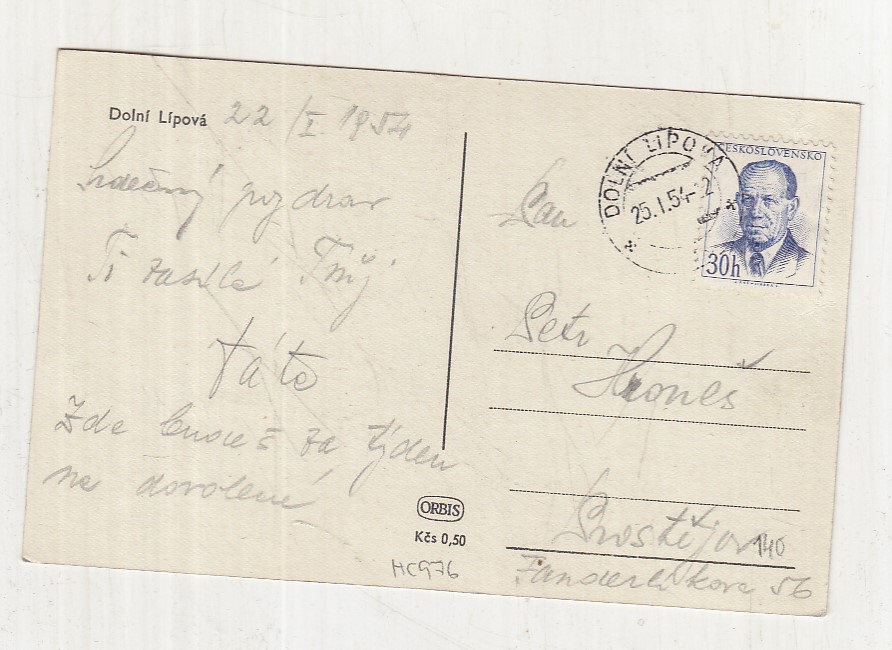 Dolní Lípová 22/I 1954
Srdečný pozdrav
Ti zasílá Tvůj
táta
Zde budeš za týden
na dovolené
ORBIS
Kčs 0,50
HC976
DOLNÍ LIPOVÁ
25.I.54-12
ČESKOSLOVENSKO
30h
Pan
Petr
Hroneš
Prostějov
140
Fanderlíkova 56